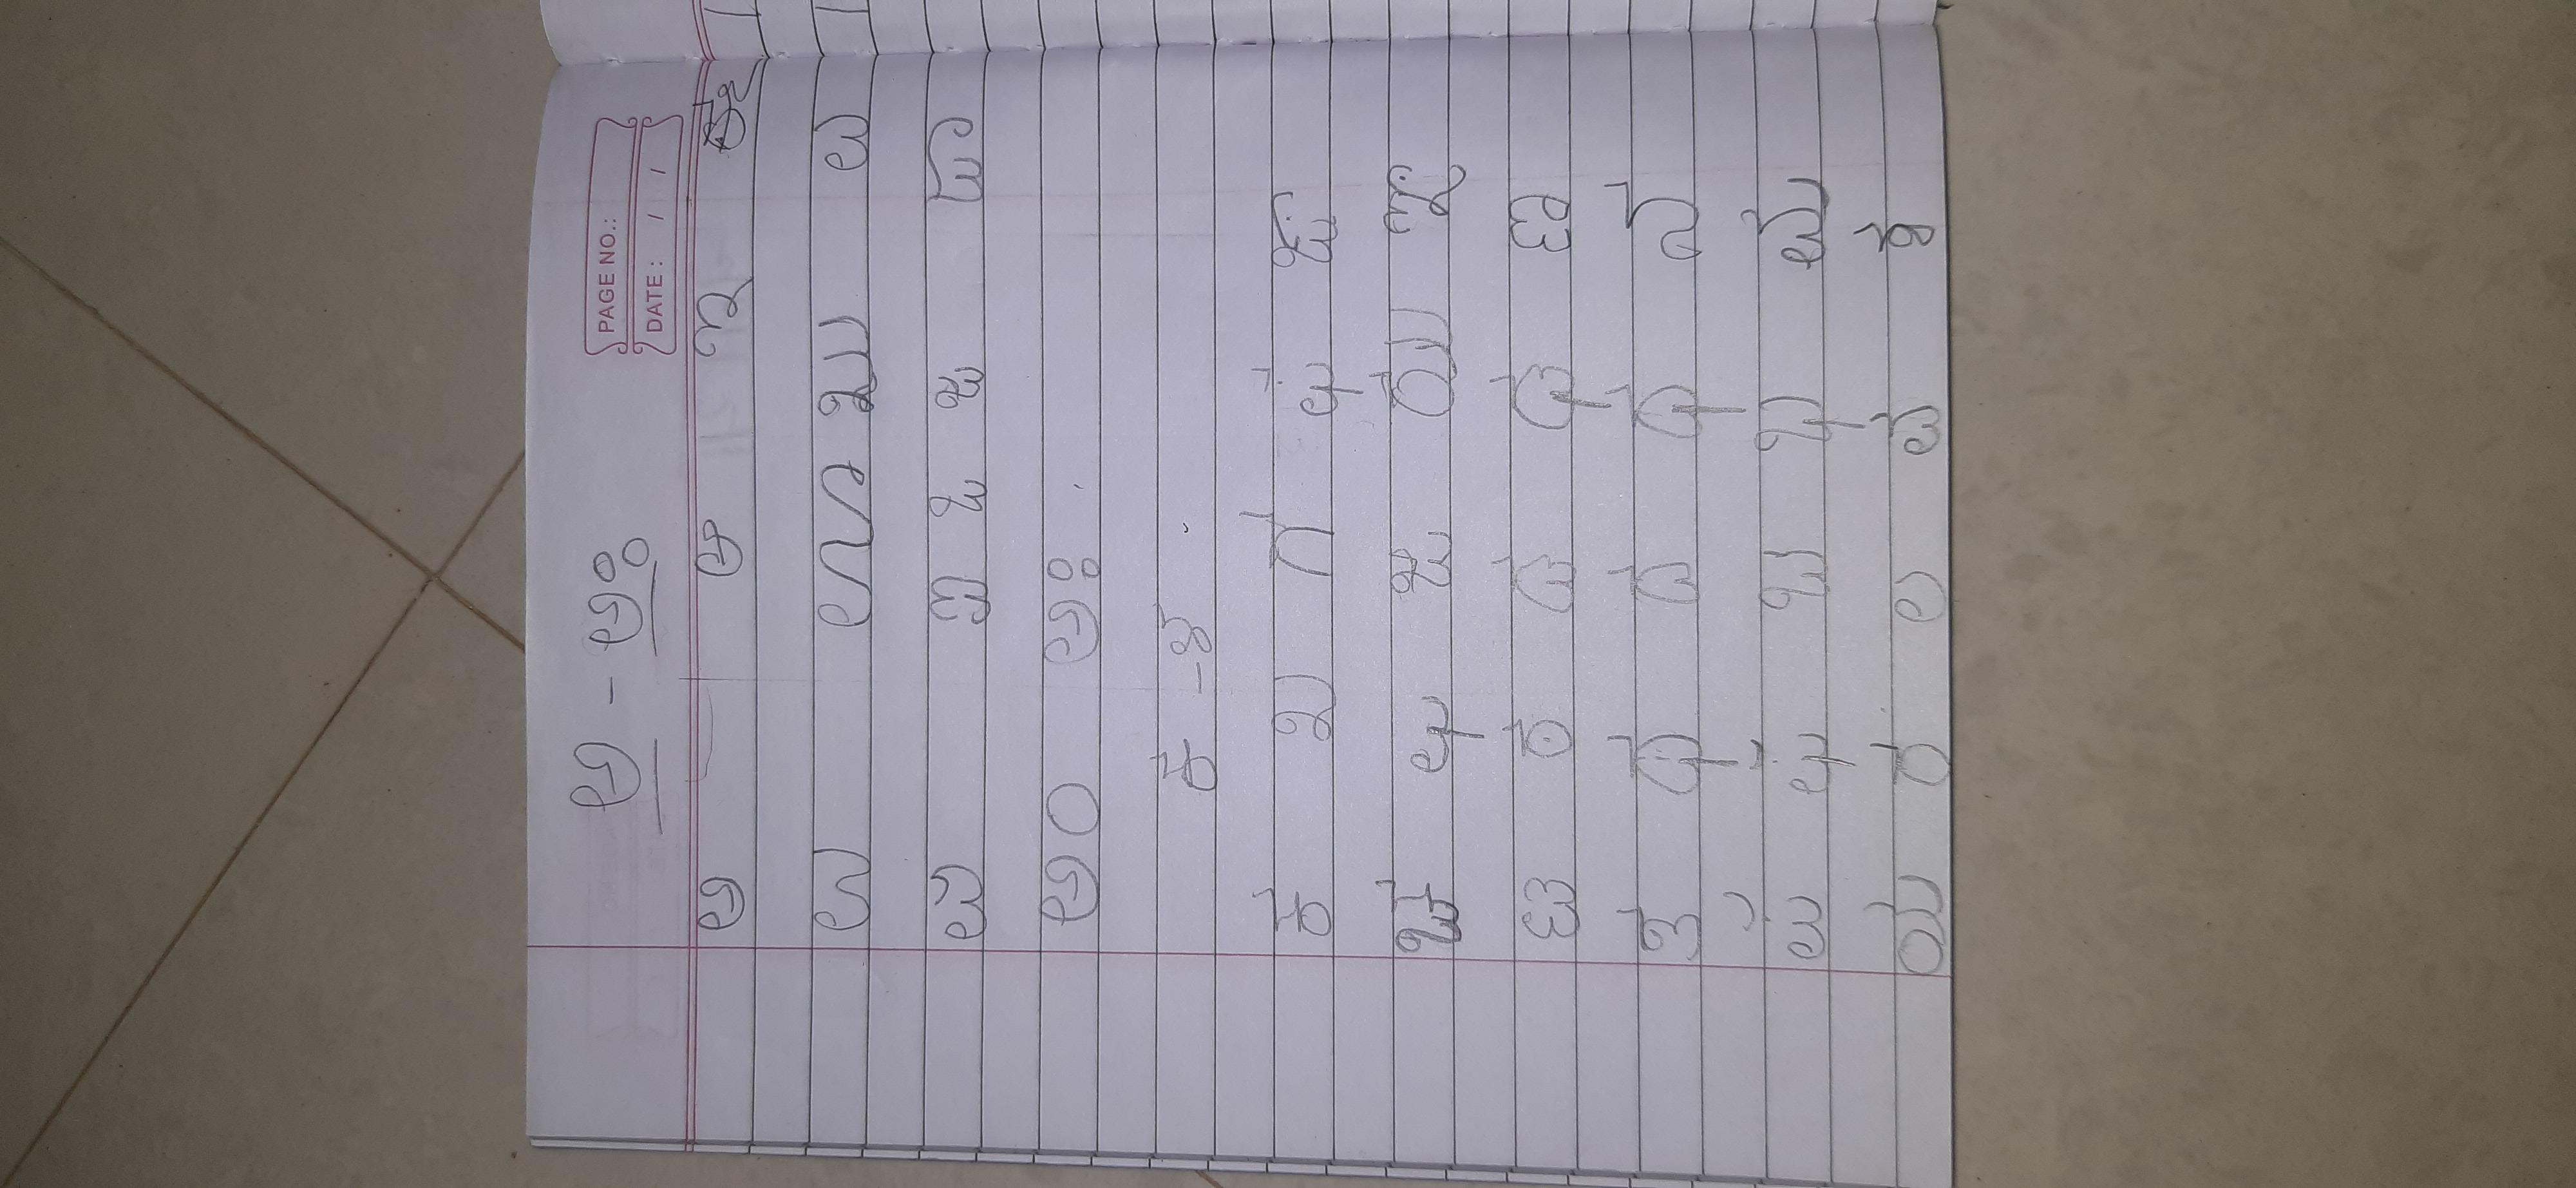 PAGE NO.:
DATE: / /
అ - అః
అ ఆ ఇ ఈ
ఉ ఊ ఋ ఎ
ఏ ఐ ఒ ఓ ఔ
అం అః
క - ఱ
క ఖ గ ఘ ఙ
చ ఛ జ ఝ ఞ
ట ఠ డ ఢ ణ
త థ ద ధ న
ప ఫ బ భ మ
య ర ల వ శ